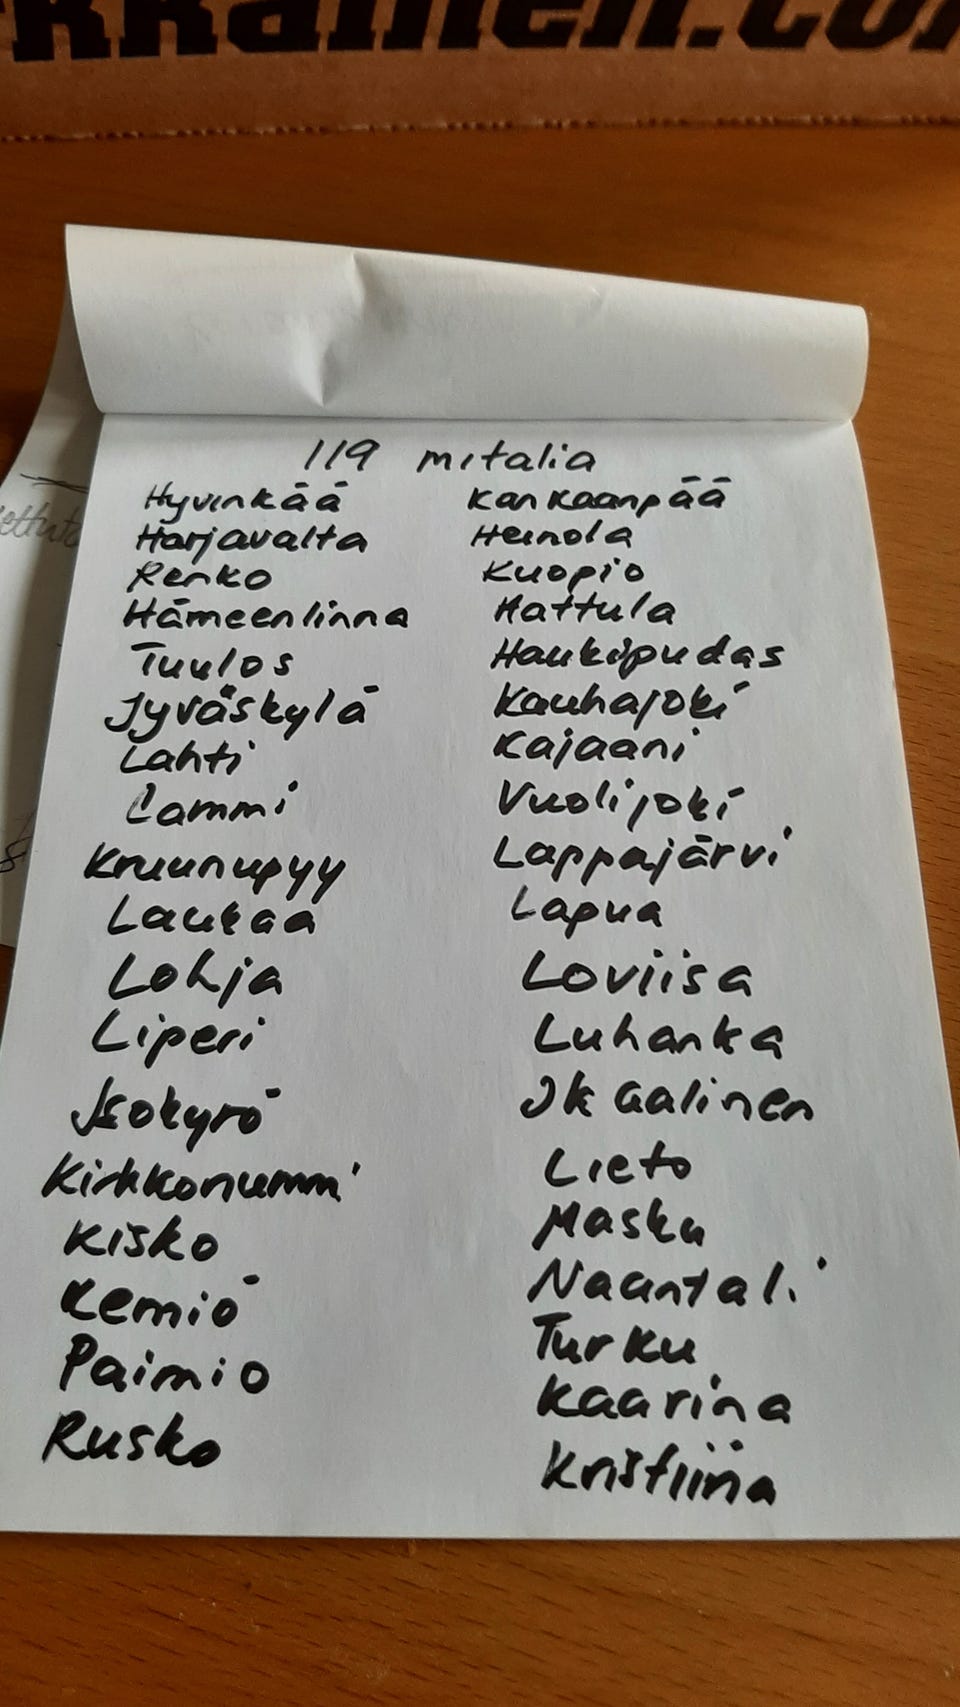 kkainen.com
119 mitalia
Hyvinkää
Harjavalta
Renko
Hämeenlinna
Tuulos
Jyväskylä
Lahti
Lammi
Kruunupyy
Laukaa
Lohja
Liperi
Isokyrö
Kirkkonummi
Kisko
Kemiö
Paimio
Rusko
Kankaanpää
Heinola
Kuopio
Hattula
Haukipudas
Kauhajoki
Kajaani
Vuolijoki
Lappajärvi
Lapua
Loviisa
Luhanka
Ikaalinen
Lieto
Masku
Naantali
Turku
Kaarina
Kristiina